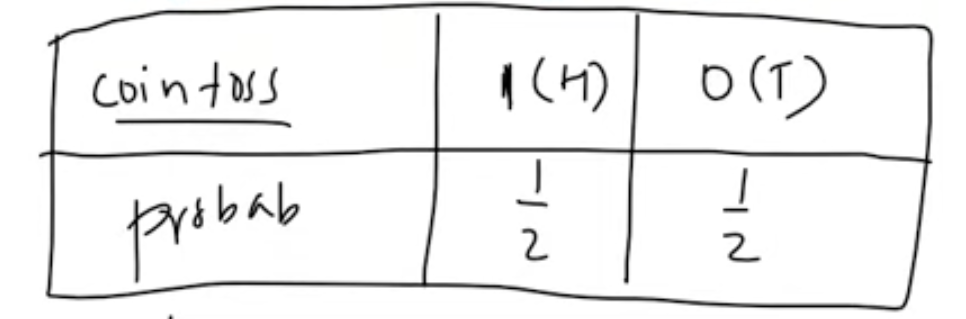 cointoss 1(H) 0(T)
probab 1/2 1/2